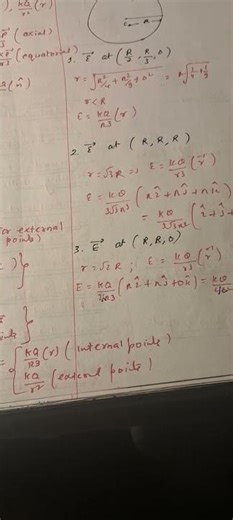 ), kQ/r² (r̂)
(axial)
(equatorial)
(n̂)
R
1. E⃗ at (R/2, R/3, 0)
r = √(R²/4 + R²/9 + 0²) = R√(1/4 + 1/9)
r < R
E = kQ/R3 (r)
2. E⃗ at (R, R, R)
r = √3 R => E = kQ/r3 (r⃗)
E = kQ/3√3R³ (Rî + Rĵ + Rk̂)
= kQ/3√3R² (î + ĵ +
for external points)
3. E⃗ at (R, R, 0)
r = √2 R ; E = kQ/r3 (r⃗)
E = kQ/ (Rî + Rĵ + 0k̂) = kQ
= { kQ/R3 (r) (internal points)
kQ/r² (external points)